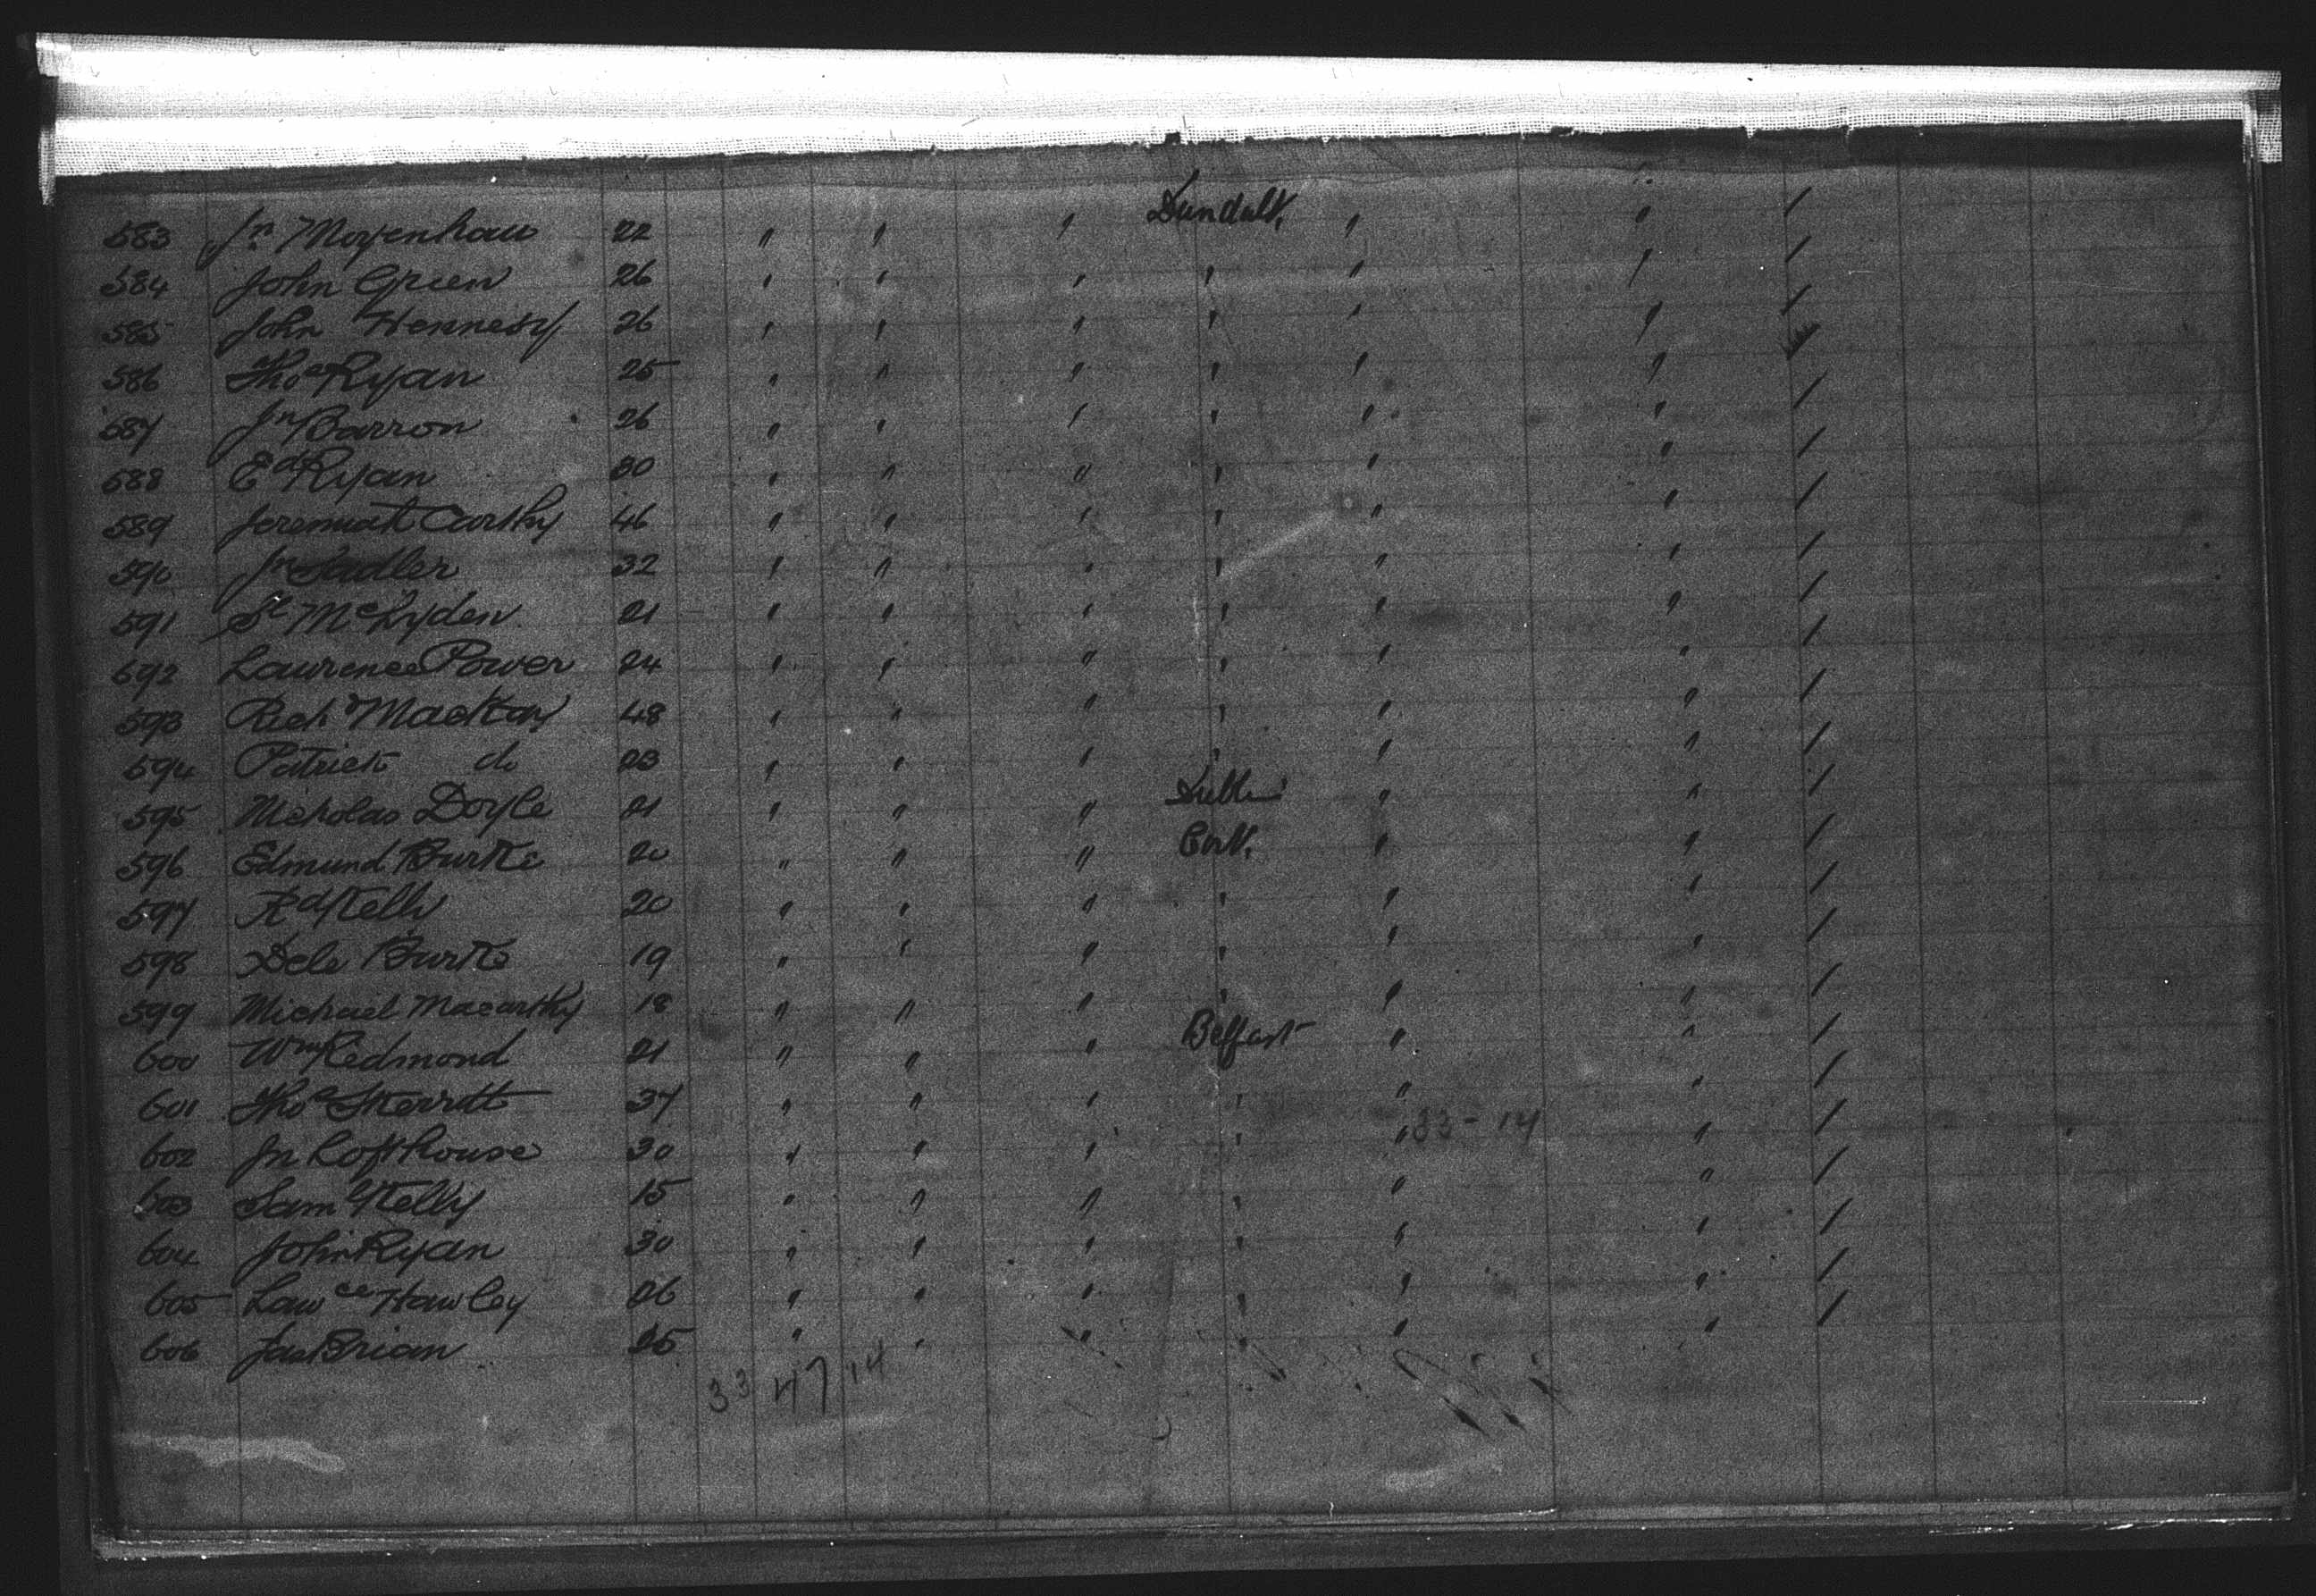 583 Jn Moyenhau 22 " " " Dundalk " " /
584 John Green 26 " " " " " " /
585 John Hennessy 26 " " " " " " /
586 Thos Ryan 25 " " " " " "
587 Jn Barron 26 " " " " " " /
588 Ed Ryan 30 " " " " " " /
589 Jeremiah Carthy 46 " " " " " " /
590 Jn Sadler 32 " " " " " " /
591 St McLyden 21 " " " " " " /
592 Lawrence Power 24 " " " " " " /
593 Richd Mackay 48 " " " " " " /
594 Patrick do 23 " " " " " " /
595 Nicholas Doyle 21 " " " " " /
596 Edmund Burke 20 " " " Cork " " /
597 Rd Kelly 20 " " " " " " /
598 Burke 19 " " " " " " /
599 Michael Macarthy 18 " " " " " " /
600 Wm Redmond 21 " " " Belfast " " /
601 Thos Skerritt 37 " " " " " " /
602 Jn Lofthouse 30 " " " " " 33-14 " /
603 Saml Kelly 15 " " " " " " /
604 John Ryan 30 " " " " " " /
605 Lawce Hawley 26 " " " " " " /
606 Jas Brian 25 " " " " " " /
33 47 14